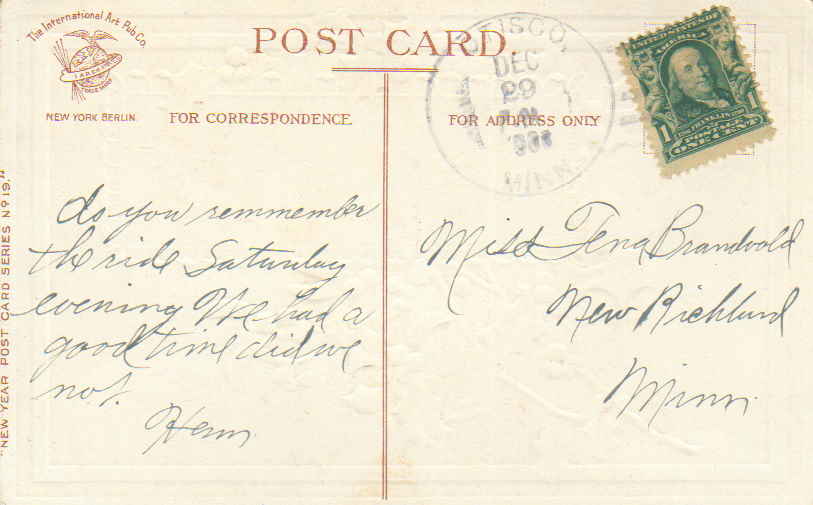 The International Art Pub Co.
NEW YORK BERLIN.
POST CARD.
FOR CORRESPONDENCE
FOR ADDRESS ONLY
OTISCO,
DEC
29
MINN
UNITED STATES OF AMERICA
1 FRANKLIN 1
POSTAGE
ONE CENT
"NEW YEAR POST CARD SERIES Nº 19."
do you remmember
the ride Saturday
evening We had a
good time did we
not.
Miss Tena Brandvold
New Richland
Minn.